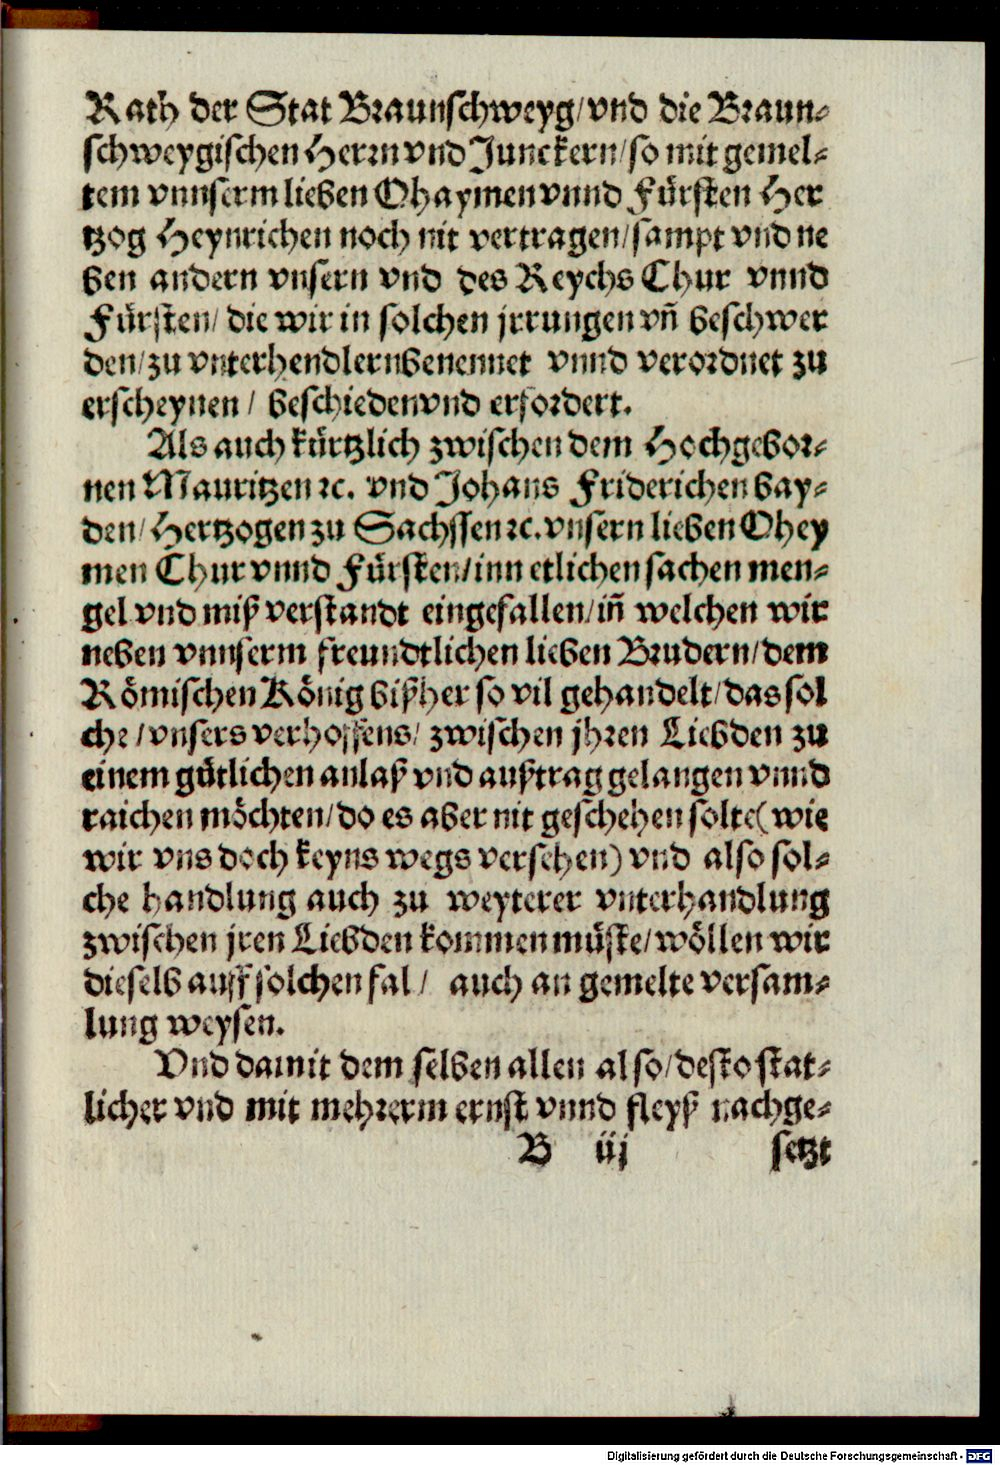 Rath der Stat Braunschweyg/vnd die Braun-
schweygischen Herrn vnd Junckern/so mit gemel-
tem vnnserm lieben Ohaymen vnnd Fürsten Her
tzog Heynrichen noch nit vertragen/sampt vnd ne
ben andern vnsern vnd des Reychs Chur vnnd
Fürsten/die wir in solchen jrrungen vñ beschwer
den/zu vnterhendlern benennet vnnd verordnet zu
erscheynen/ beschieden vnd erfordert.
Als auch kürtzlich zwischen dem Hochgebor-
nen Mauritzen ꝛc. vnd Johans Friderichen bay-
den/Hertzogen zu Sachssen ꝛc. vnsern lieben Ohey
men Chur vnnd Fürsten/inn etlichen sachen men-
gel vnd mißverstandt eingefallen/iñ welchen wir
neben vnnserm freundtlichen lieben Brudern/dem
Römischen König bißher so vil gehandelt/das sol
che/vnsers verhoffens/zwischen jhren Liebden zu
einem gütlichen anlaß vnd außtrag gelangen vnnd
raichen möchten/do es aber nit geschehen solte(wie
wir vns doch keyns wegs versehen) vnd also sol-
che handlung auch zu weyterer vnterhandlung
zwischen jren Liebden kommen müste/wöllen wir
dieselb auff solchen fal/ auch an gemelte versam-
lung weysen.
Vnd damit dem selben allen also/desto stat-
licher vnd mit mehrerm ernst vnnd fleyß nachge-
B iij setzt
Digitalisierung gefördert durch die Deutsche Forschungsgemeinschaft - DFG